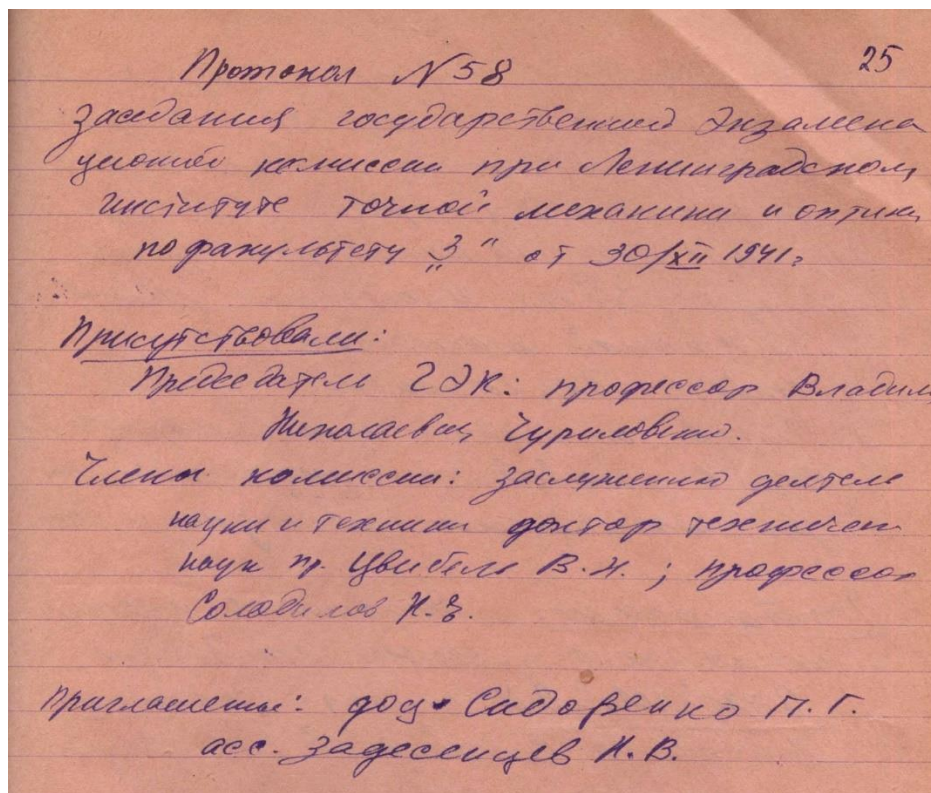 25
Протокол № 58
заседания государственной Экзамена
ционной комиссии при Ленинградском
институте точной механики и оптики
по факультету „З“ от 30/XII 1941г
Присутствовали:
Председатель ГЭК: профессор Владим
Николаевич Чуриловский.
Члены комиссии: заслуженный деятель
науки и техники доктор техничес
наук пр. Цвибель В.Н.; профессор
Солодилов К.Е.
Приглашены: доц. Сидоренко П.Г.
асс. Задесенцев Н.В.